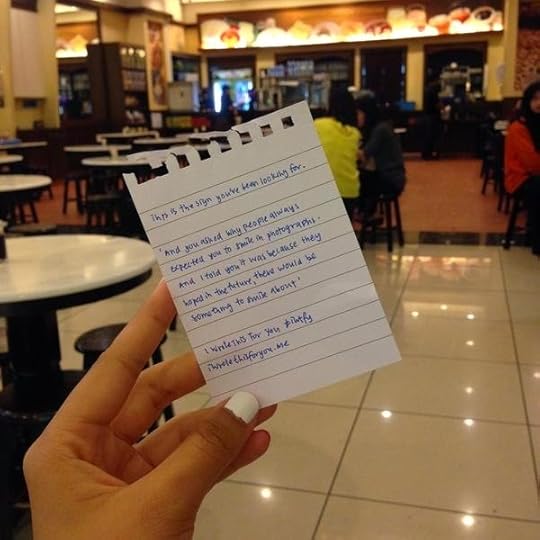 This is the sign you've been looking for.
'And you asked why people always
expected you to smile in photographs.
And I told you it was because they
hoped in the future, there would be
something to smile about'
I wrote this for you #iwtfy
iwrotethisforyou.me